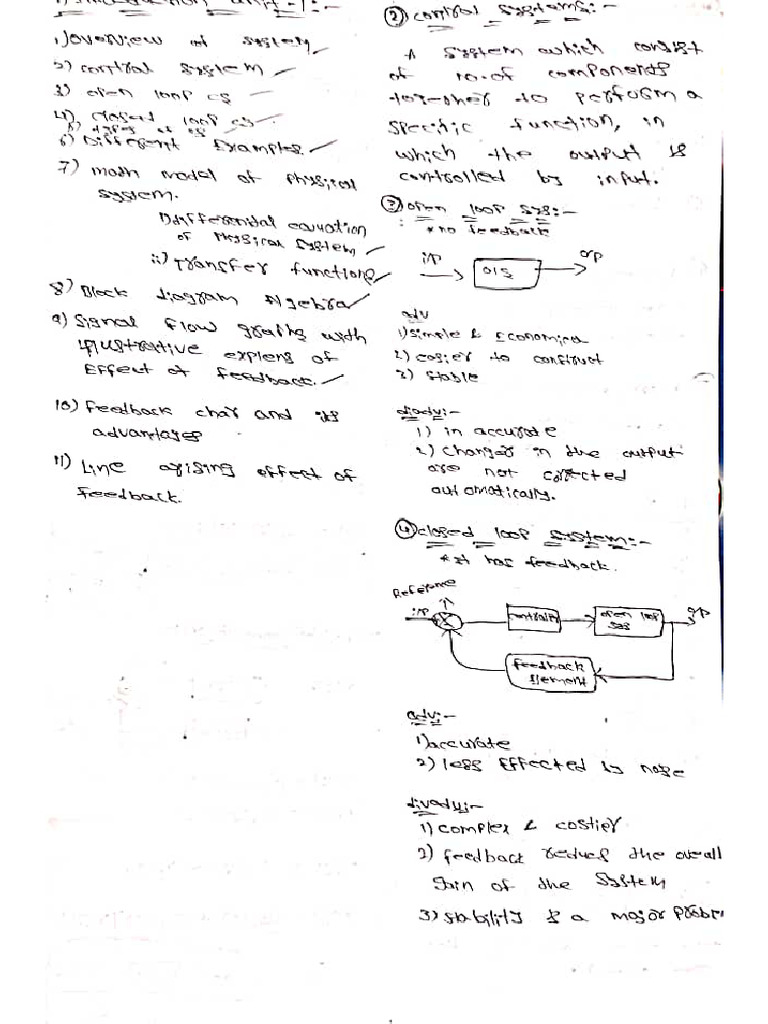 1) Introduction unit-1:-
1) overview of system
2) control system
3) open loop cs
4) closed loop cs
5) types of cs
6) Different Examples.
7) math model of Physical
system.
i) differential equation
of Physical System
ii) Transfer functions
8) Block diagram Algebra
9) Signal flow graphs with
illustrative
Effect of feedback.
10) feedback char and its
advantages
11) Line arising effect of
feedback.
② control systems:-
A system which consist
of no.of components
together to perform a
specific function, in
which the output is
controlled by input.
③ open loop sys:-
* no feedback
i/p
o/p
OLS
adv
1) simple & Economical
2) easier to construct
3) stable
disadv:-
1) in accurate
2) changes in the output
are not corrected
automatically.
④ closed loop system:-
* it has feedback.
Reference
i/p
controller
open loop
sys
o/p
feedback
Element
adv:-
1) accurate
2) less effected by noise
disadv:-
1) complex & costier
2) feedback reduces the overall
gain of the system
3) stability is a major